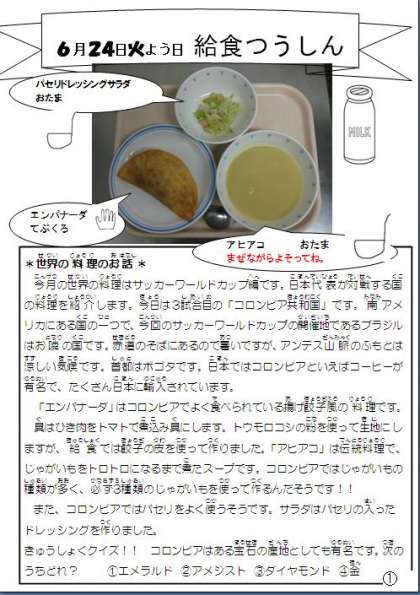 6月24日火よう日 給食つうしん
パセリドレッシングサラダ
おたま
MILK
エンパナーダ
てぶくろ
アヒアコ おたま
まぜながらよそってね。
*世界の料理のお話*
今月の世界の料理はサッカーワールドカップ編です。日本代表が対戦する国
の料理を紹介します。今日は3試合目の「コロンビア共和国」です。南アメ
リカにある国の一つで、今回のサッカーワールドカップの開催地であるブラジル
はお隣の国です。赤道のそばにあるので暑いですが、アンデス山脈のふもとは
涼しい気候です。首都はボゴタです。日本ではコロンビアといえばコーヒーが
有名で、たくさん日本に輸入されています。
「エンパナーダ」はコロンビアでよく食べられている揚げ餃子風の料理です。
具はひき肉をトマトで煮込み具にします。トウモロコシの粉を使って生地にし
ますが、給食では餃子の皮を使って作りました。「アヒアコ」は伝統料理で、
じゃがいもをトロトロになるまで煮たスープです。コロンビアではじゃがいもの
種類が多く、必ず3種類のじゃがいもを使って作るんだそうです!!
また、コロンビアではパセリをよく使うそうです。サラダはパセリの入った
ドレッシングを作りました。
きゅうしょくクイズ!! コロンビアはある宝石の産地としても有名です。次の
うちどれ? ①エメラルド ②アメジスト ③ダイヤモンド ④金
①